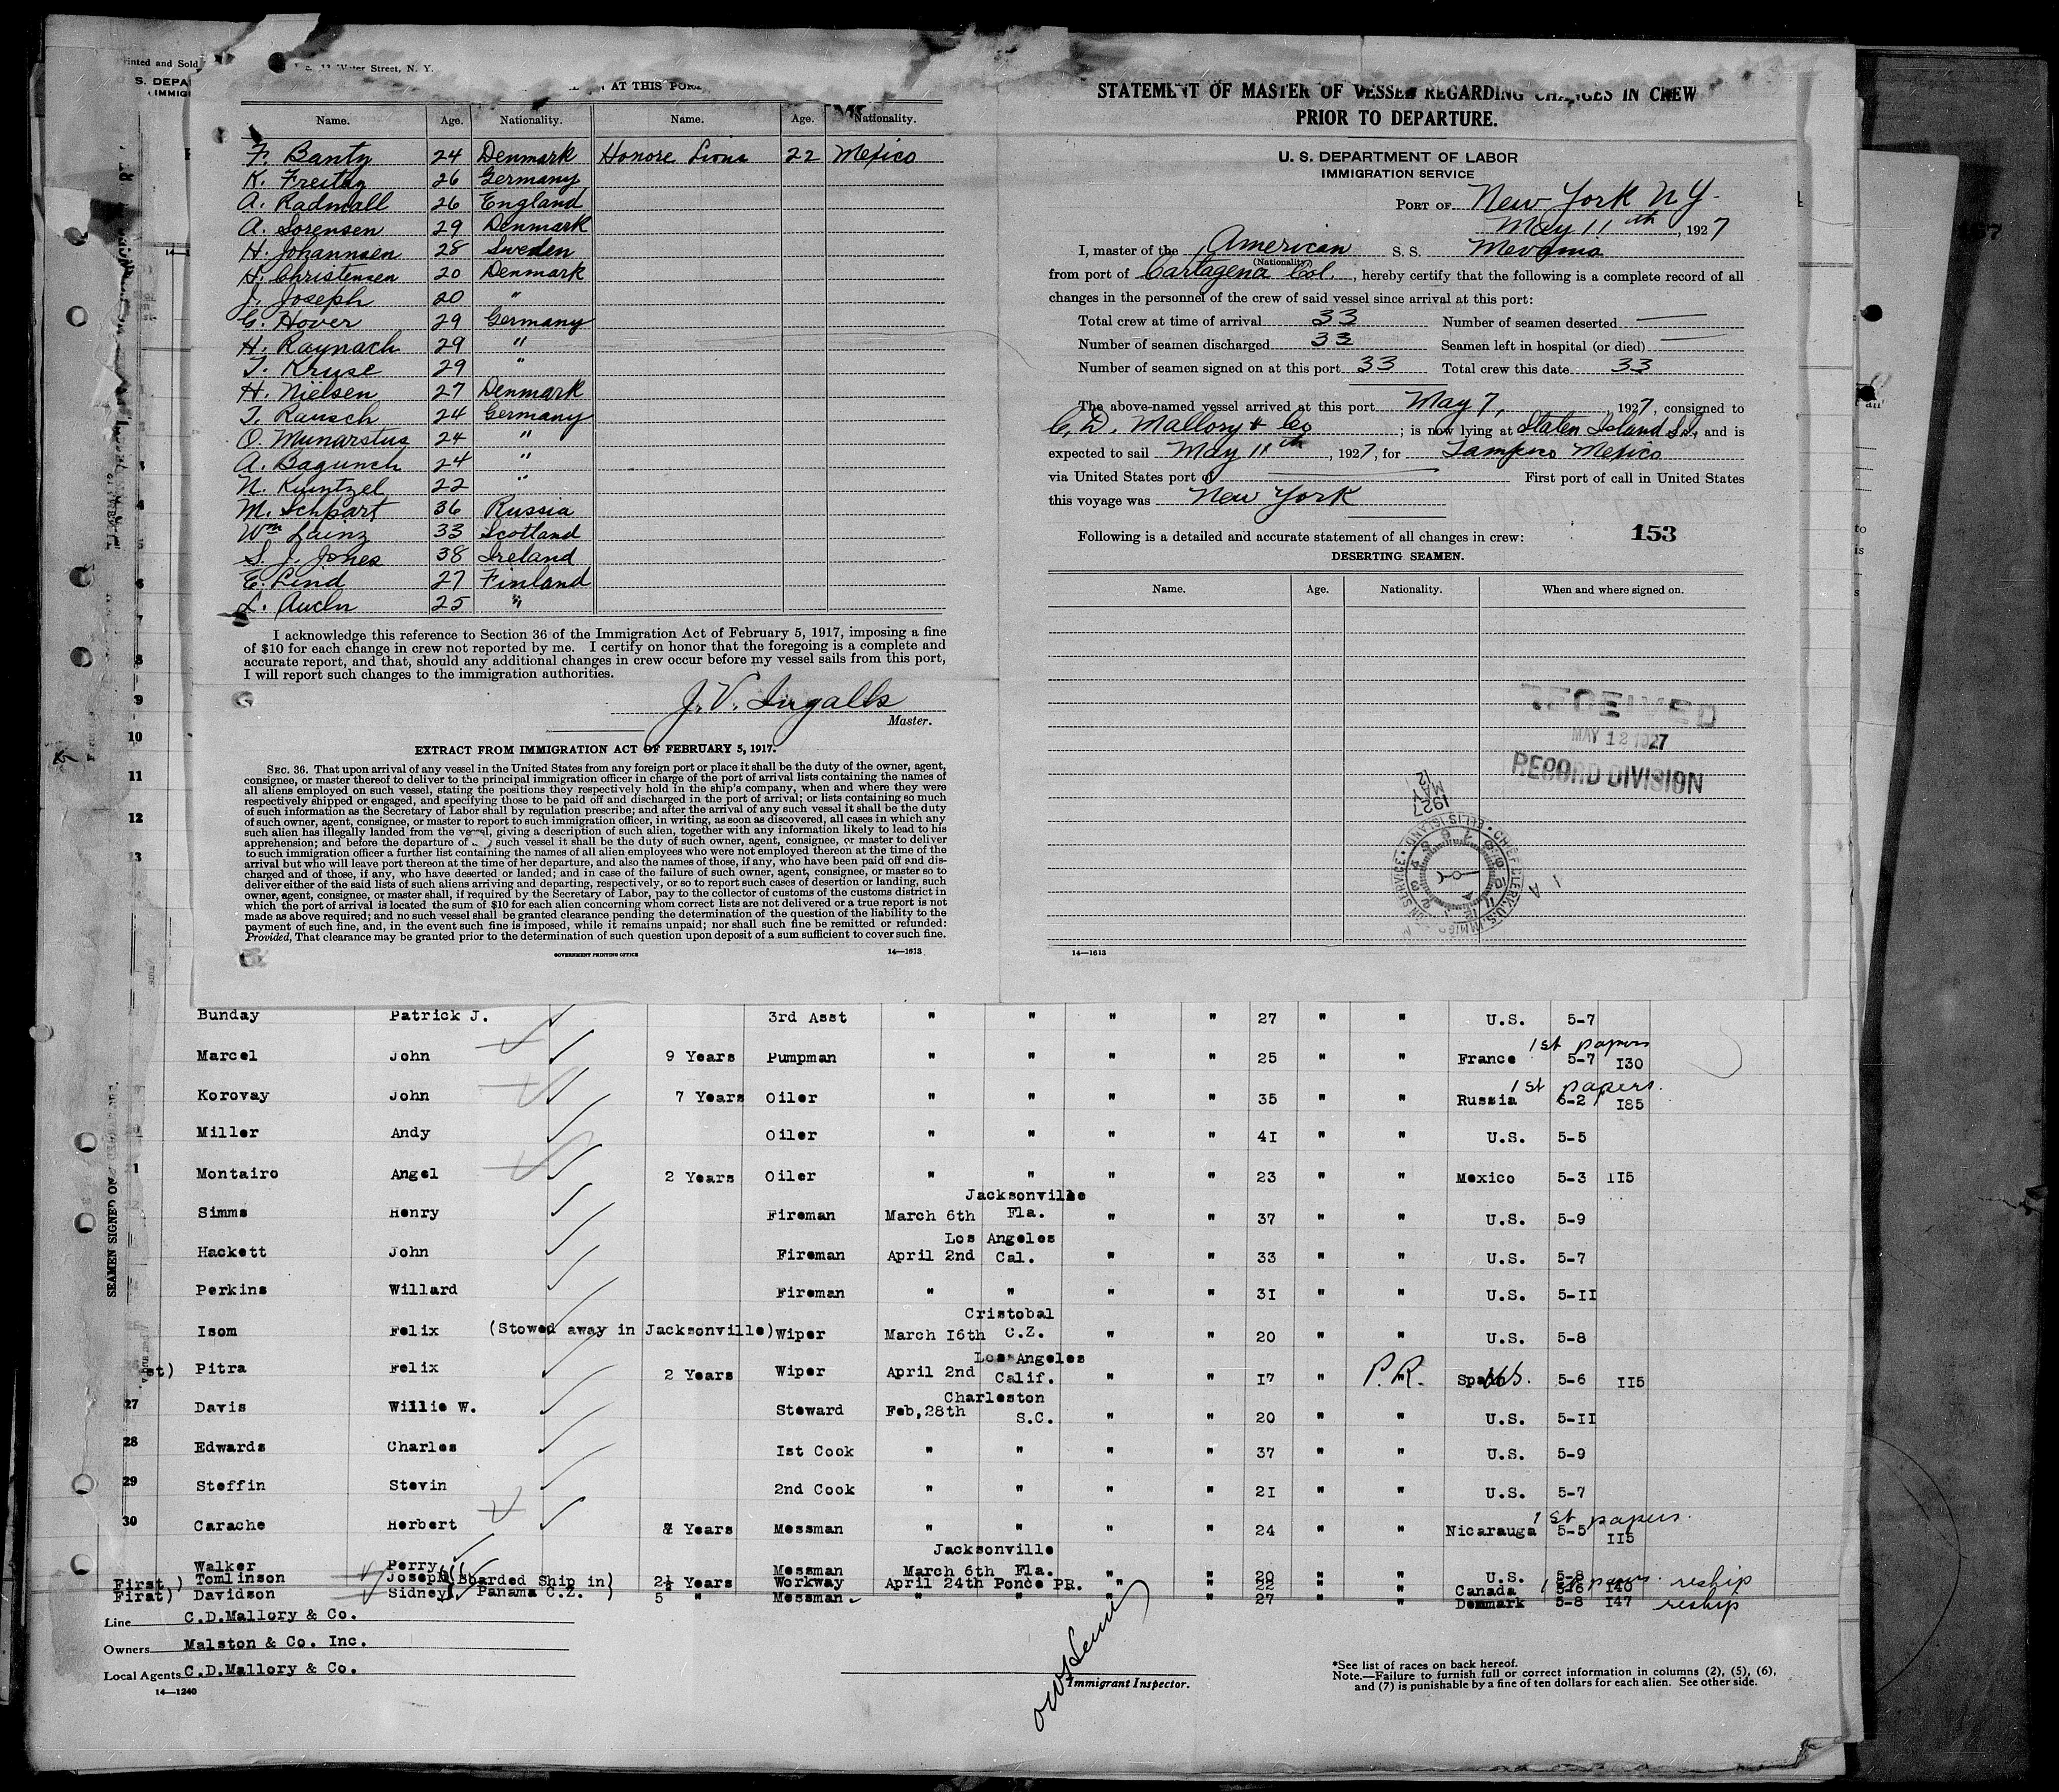 inted and Sold
Water Street, N. Y.
S. DEPA
IMMIG
AT THIS POR
Name. Age. Nationality. Name. Age. Nationality.
F. Banty 24 Denmark Honore Liona 22 Mexico
K. Freitag 26 Germany
A. Radmall 26 England
A. Sorensen 29 Denmark
H. Johannsen 28 Sweden
H. Christensen 20 Denmark
J. Joseph 20 "
G. Hover 29 Germany
H. Raynach 29 "
T. Kruse 29 "
H. Nielsen 27 Denmark
T. Rausch 24 Germany
O. Munarstus 24 "
A. Bagunch 24 "
N. Kuntzel 22 "
M. Schpart 36 Russia
Wm Lainz 33 Scotland
S. J. Jones 38 Ireland
E. Lind 27 Finland
L. Aueln 25 "
I acknowledge this reference to Section 36 of the Immigration Act of February 5, 1917, imposing a fine
of $10 for each change in crew not reported by me. I certify on honor that the foregoing is a complete and
accurate report, and that, should any additional changes in crew occur before my vessel sails from this port,
I will report such changes to the immigration authorities.
J. V. Ingalls
Master.
EXTRACT FROM IMMIGRATION ACT OF FEBRUARY 5, 1917.
SEC. 36. That upon arrival of any vessel in the United States from any foreign port or place it shall be the duty of the owner, agent,
consignee, or master thereof to deliver to the principal immigration officer in charge of the port of arrival lists containing the names of
all aliens employed on such vessel, stating the positions they respectively hold in the ship's company, when and where they were
respectively shipped or engaged, and specifying those to be paid off and discharged in the port of arrival; or lists containing so much
of such information as the Secretary of Labor shall by regulation prescribe; and after the arrival of any such vessel it shall be the duty
of such owner, agent, consignee, or master to report to such immigration officer, in writing, as soon as discovered, all cases in which any
such alien has illegally landed from the vessel, giving a description of such alien, together with any information likely to lead to his
apprehension; and before the departure of such vessel it shall be the duty of such owner, agent, consignee, or master to deliver
to such immigration officer a further list containing the names of all alien employees who were not employed thereon at the time of the
arrival but who will leave port thereon at the time of her departure, and also the names of those, if any, who have been paid off and dis-
charged and of those, if any, who have deserted or landed; and in case of the failure of such owner, agent, consignee, or master so to
deliver either of the said lists of such aliens arriving and departing, respectively, or so to report such cases of desertion or landing, such
owner, agent, consignee, or master shall, if required by the Secretary of Labor, pay to the collector of customs of the customs district in
which the port of arrival is located the sum of $10 for each alien concerning whom correct lists are not delivered or a true report is not
made as above required; and no such vessel shall be granted clearance pending the determination of the question of the liability to the
payment of such fine, and, in the event such fine is imposed, while it remains unpaid; nor shall such fine be remitted or refunded:
Provided, That clearance may be granted prior to the determination of such question upon deposit of a sum sufficient to cover such fine.
GOVERNMENT PRINTING OFFICE 14—1613
STATEMENT OF MASTER OF VESSEL REGARDING CHANGES IN CREW
PRIOR TO DEPARTURE.
U. S. DEPARTMENT OF LABOR
IMMIGRATION SERVICE
PORT OF New York N Y.
May 11th, 1927
I, master of the American S. S. Mevania
(Nationality)
from port of Cartagena Col., hereby certify that the following is a complete record of all
changes in the personnel of the crew of said vessel since arrival at this port:
Total crew at time of arrival 33 Number of seamen deserted —
Number of seamen discharged 33 Seamen left in hospital (or died) —
Number of seamen signed on at this port 33 Total crew this date 33
The above-named vessel arrived at this port May 7, 1927, consigned to
C. D. Mallory & Co; is now lying at Staten Island Sd, and is
expected to sail May 11th, 1927, for Tampico Mexico
via United States port of — First port of call in United States
this voyage was New York
Following is a detailed and accurate statement of all changes in crew: 153
DESERTING SEAMEN.
Name. Age. Nationality. When and where signed on.
RECEIVED
MAY 12 1927
RECORD DIVISION
1927 MAY 12
CHIEF CLERK, U.S. IMMIGRATION SERVICE • ELLIS ISLAND
14—1613
Bunday Patrick J. 3rd Asst " " " " 27 " " U.S. 5-7
Marcel John 9 Years Pumpman " " " " 25 " " France 1st papers 5-7 130
Korovay John 7 Years Oiler " " " " 35 " " Russia 1st papers. 6-2 185
Miller Andy Oiler " " " " 41 " " U.S. 5-5
Montairo Angel 2 Years Oiler " " " " 23 " " Mexico 5-3 115
Simms Henry Fireman March 6th Jacksonville Fla. " " 37 " " U.S. 5-9
Hackett John Fireman April 2nd Los Angeles Cal. " " 33 " " U.S. 5-7
Perkins Willard Fireman " " " " 31 " " U.S. 5-11
Isom Felix (Stowed away in Jacksonville) Wiper March 16th Cristobal C.Z. " " 20 " " U.S. 5-8
st) Pitra Felix 2 Years Wiper April 2nd Los Angeles Calif. " " 17 " P.R. Spain U.S. 5-6 115
27 Davis Willie W. Steward Feb,28th Charleston S.C. " " 20 " " U.S. 5-11
28 Edwards Charles 1st Cook " " " " 37 " " U.S. 5-9
29 Steffin Stevin 2nd Cook " " " " 21 " " U.S. 5-7
30 Carache Herbert Years Messman " " " " 24 " " Nicarauga 1st papers. 5-5 115
Walker Perry Messman March 6th Jacksonville Fla. " " 20 " " U.S. 5-8
First) Tomlinson Joseph (Boarded Ship in) 2½ Years Workway April 24th Ponce PR. " " 22 " " Canada 5-6 140 reship
First) Davidson Sidney Panama C.Z. ) 5 " Messman " " " " 27 " " Denmark 5-8 147 reship
Line C.D.Mallory & Co.
Owners Malston & Co. Inc.
Local Agents C.D.Mallory & Co.
14—1240
Immigrant Inspector.
*See list of races on back hereof.
Note.—Failure to furnish full or correct information in columns (2), (5), (6),
and (7) is punishable by a fine of ten dollars for each alien. See other side.
SEAMEN SIGNED ON